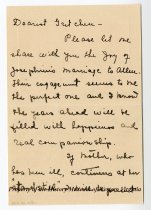 Dearest Gretchen -
Please let me
share with you the joy of
Josephine's marriage to Allen.
Their engagement seems to me
the perfect one and I know
the years ahead will be
filled with happiness and
real companionship.
If Mother, who
has been ill, continues at her